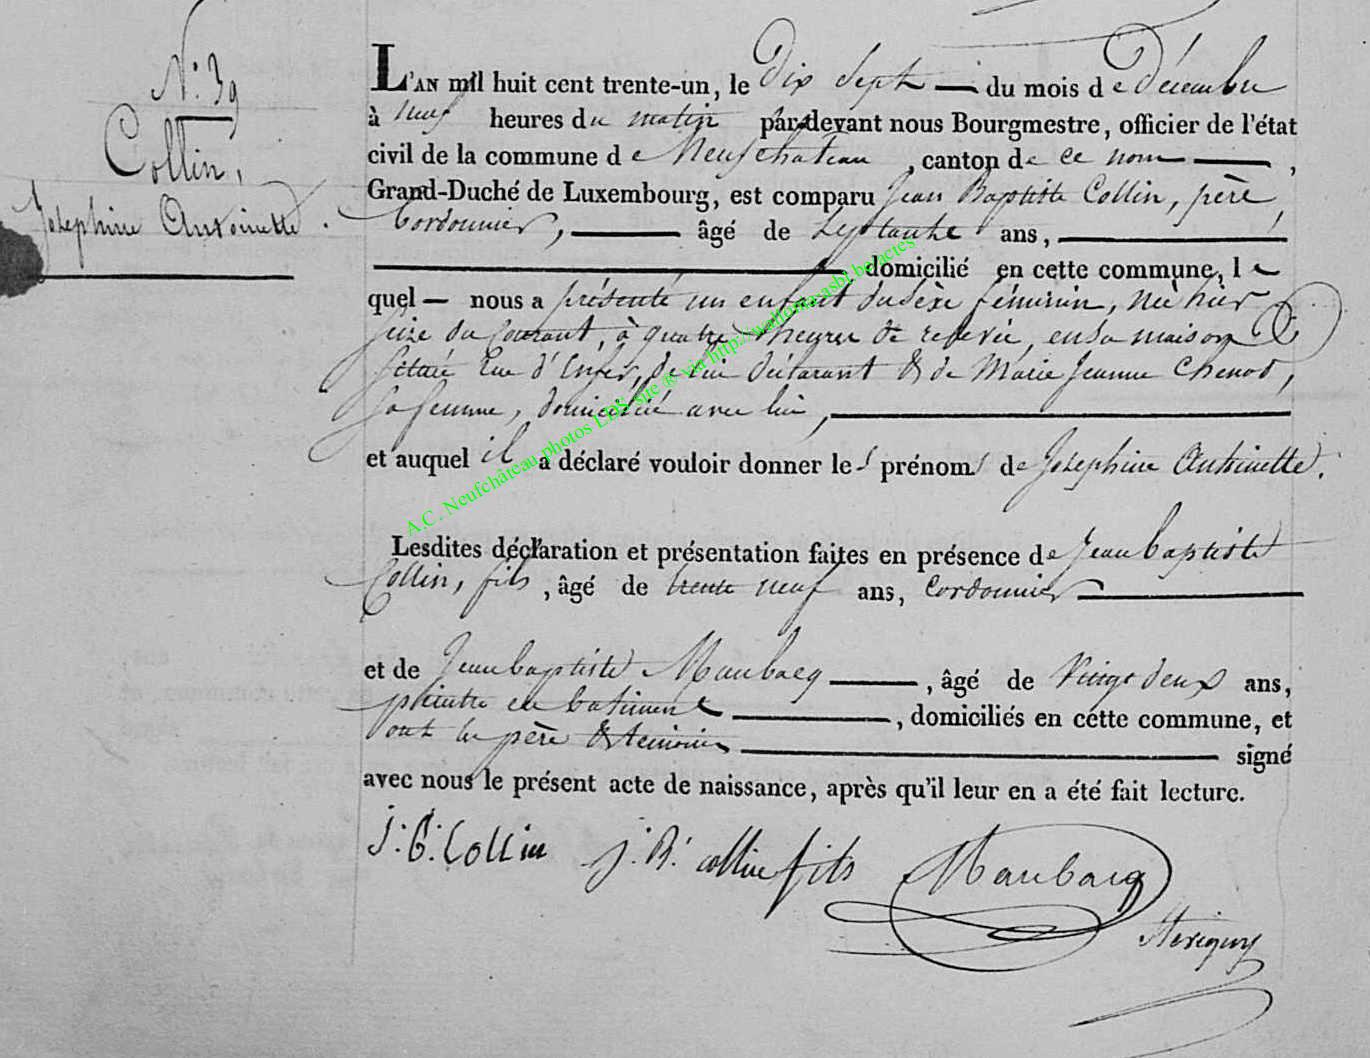 N.° 39
Collin,
Josephine Antoinette.
L'AN mil huit cent trente-un, le Dix Sept du mois de Décembre
à neuf heures du matin pardevant nous Bourgmestre, officier de l'état
civil de la commune de Neufchateau, canton de ce nom,
Grand-Duché de Luxembourg, est comparu Jean Baptiste Collin, père,
Cordonnier, âgé de septante ans,
domicilié en cette commune, le
quel nous a présenté un enfant du sèxe féminin, née hier
seize du Courant, à quatre heures de relevée, en sa maison
située Rue d'Enfer, de lui déclarant & de Marie Jeanne Chenot,
sa femme, domiciliée avec lui,
et auquel il a déclaré vouloir donner les prénoms de Josephine Antoinette.
Lesdites déclaration et présentation faites en présence de Jean baptiste
Collin, fils, âgé de trente neuf ans, Cordonnier
et de Jean baptiste Maubacq, âgé de Vingt deux ans,
peintre en batiment, domiciliés en cette commune, et
ont les père & témoins signé
avec nous le présent acte de naissance, après qu'il leur en a été fait lecture.
J. B. Collin J. B. collin fils Maubacq
A.C. Neufchâteau photos LDS site ® via http://wallonia-asbl.be/actes